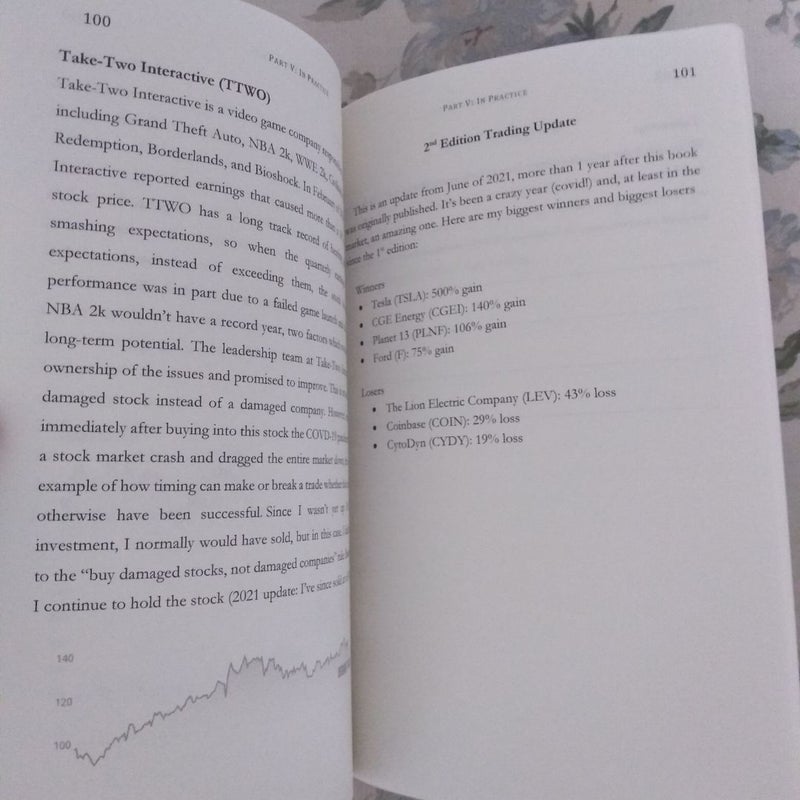 100
PART V: IN PRACTICE
Take-Two Interactive (TTWO)
Take-Two Interactive is a video game company
including Grand Theft Auto, NBA 2k, WWE 2k,
Redemption, Borderlands, and Bioshock. In
Interactive reported earnings that caused more than a
stock price. TTWO has a long track record of
smashing expectations, so when the quarterly
expectations, instead of exceeding them, the stock
performance was in part due to a failed game launch
NBA 2k wouldn't have a record year, two factors
long-term potential. The leadership team at Take-Two
ownership of the issues and promised to improve. This is
damaged stock instead of a damaged company. However,
immediately after buying into this stock the COVD-19
a stock market crash and dragged the entire market
example of how timing can make or break a trade
otherwise have been successful. Since I wasn't
investment, I normally would have sold, but in this case
to the “buy damaged stocks, not damaged companies”
I continue to hold the stock (2021 update: I've since sold
140
120
100
101
PART V: IN PRACTICE
2nd Edition Trading Update
This is an update from June of 2021, more than 1 year after this book
was originally published. It's been a crazy year (covid!) and, at least in the
market, an amazing one. Here are my biggest winners and biggest losers
since the 1st edition:
Winners
• Tesla (TSLA): 500% gain
• CGE Energy (CGEI): 140% gain
• Planet 13 (PLNF): 106% gain
• Ford (F): 75% gain
Losers
• The Lion Electric Company (LEV): 43% loss
• Coinbase (COIN): 29% loss
• CytoDyn (CYDY): 19% loss